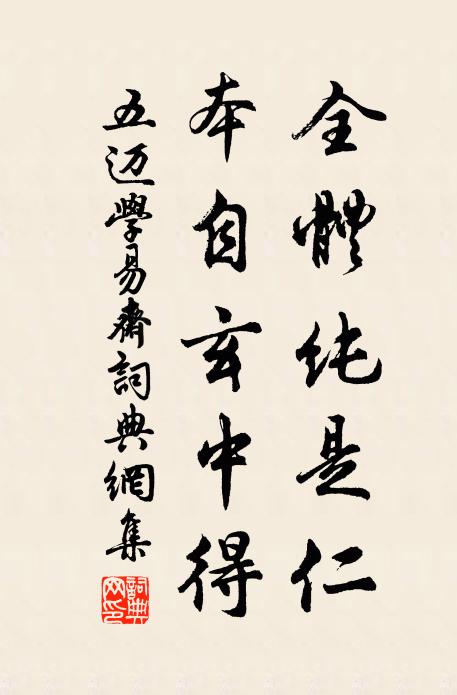 全體純是仁
本自玄中得
五迈學易齋詞典網集
詞典网印